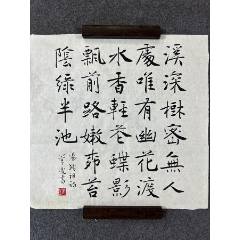 溪深樹密無人
處唯有幽花渡
水香輕花蝶影
飄前路嫩苔
陰綠半池